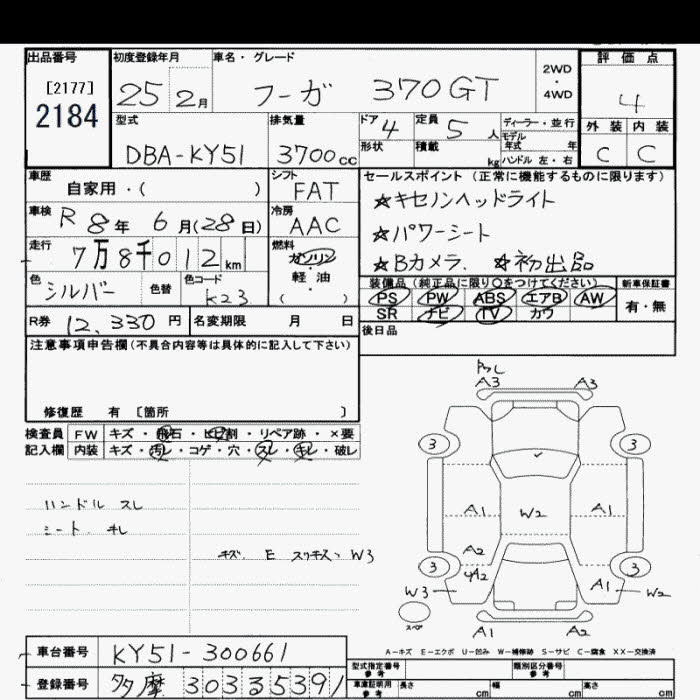 出品番号
[2177]
2184
初度登録年月
25 2月
車名・グレード
フーガ 370GT
2WD
・
4WD
評価点
4
外装 内装
C C
型式
DBA-KY51
排気量
3700cc
ドア 4
形状
定員 5人
積載 kg
ディーラー・並行
モデル
年式 年
ハンドル 左・右
車歴
自家用・( )
シフト
FAT
車検
R 8年 6月(28日)
冷房
AAC
走行
7万8千012km
燃料
ガソリン
軽・油
( )
色
シルバー
色替
色コード
K23
R券 12,330円
名変期限 月 日
セールスポイント (正常に機能するものに限ります)
☆キセノンヘッドライト
☆パワーシート
☆Bカメラ. ☆初出品
装備品(純正品に限り○をつけてください)
PS PW ABS エアB AW
SR ナビ TV カワ
新車保証書
有・無
後日品
注意事項申告欄(不具合内容等は具体的に記入して下さい)
修復歴 有 〔箇所 〕
検査員 FW キズ・飛石・ヒビ割・リペア跡・×要
記入欄 内装 キズ・汚レ・コゲ・穴・スレ・キレ・破レ
ハンドル スレ
シート キレ
キズ. E スリキズ、W3
A3 A3
3 3
A1 W2 A1
A2
3 3
A2 A1 W2
W3
スペア
A1 A2
A-キズ E-エクボ U-凹み W-補修跡 S-サビ C-腐食 XX-交換済
車台番号 KY51-300661
登録番号 多摩 303 さ 5391
型式指定番号
参考
類別区分番号
参考
車庫証明用
参考
長さ cm 幅 cm 高さ cm